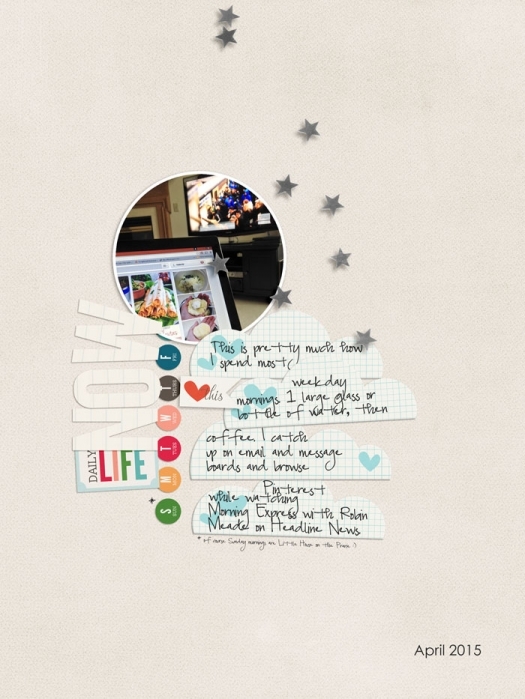 NOW
DAILY
LIFE
F
T
W
T
M
S
This is pretty much how
I spend most(
weekday
this
mornings 1 large glass or
bottle of water, then
coffee. I catch
up on email and message
boards and browse
Pinterest
while watching
Morning Express with Robin
Meade on Headline News
Sunday mornings are Little House on the Prairie :)
April 2015